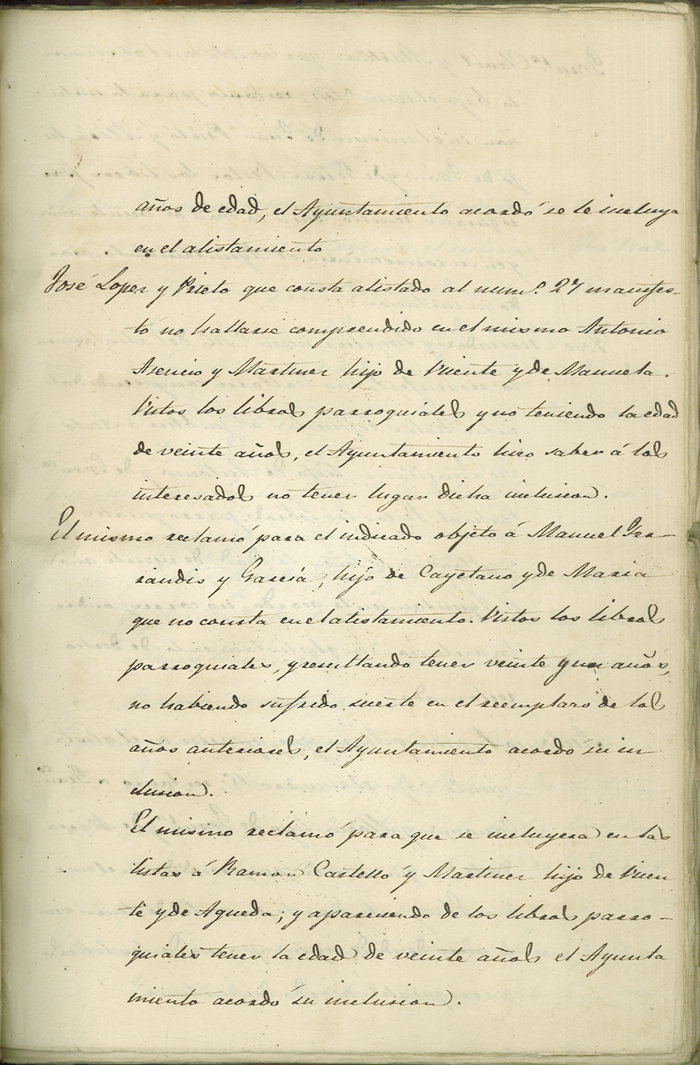 años de edad, el Ayuntamiento acordó se le incluya
en el alistamiento
José Lopez y Prieto que consta alistado al num.º 27 manifes-
tó no hallarse comprendido en el mismo Antonio
Asencio y Martinez hijo de Vicente y de Manuela.
Vistos los libros parroquiales y no teniendo la edad
de veinte años, el Ayuntamiento hizo saber á los
interesados no tener lugar dicha inclusion.
El mismo reclamó para el indicado objeto á Manuel Fer-
randis y García, hijo de Cayetano y de Maria
que no consta en el alistamiento. Vistos los libros
parroquiales, y resultando tener veinte y un años,
no habiendo sufrido suerte en el reemplazo de los
años anteriores, el Ayuntamiento acordó su in
clusion.
El mismo reclamó para que se incluyera en las
listas á Ramon Castelló y Martinez hijo de Vicen
te y de Agueda; y apareciendo de los libros parro-
quiales tener la edad de veinte años el Ayunta
miento acordó su inclusion.